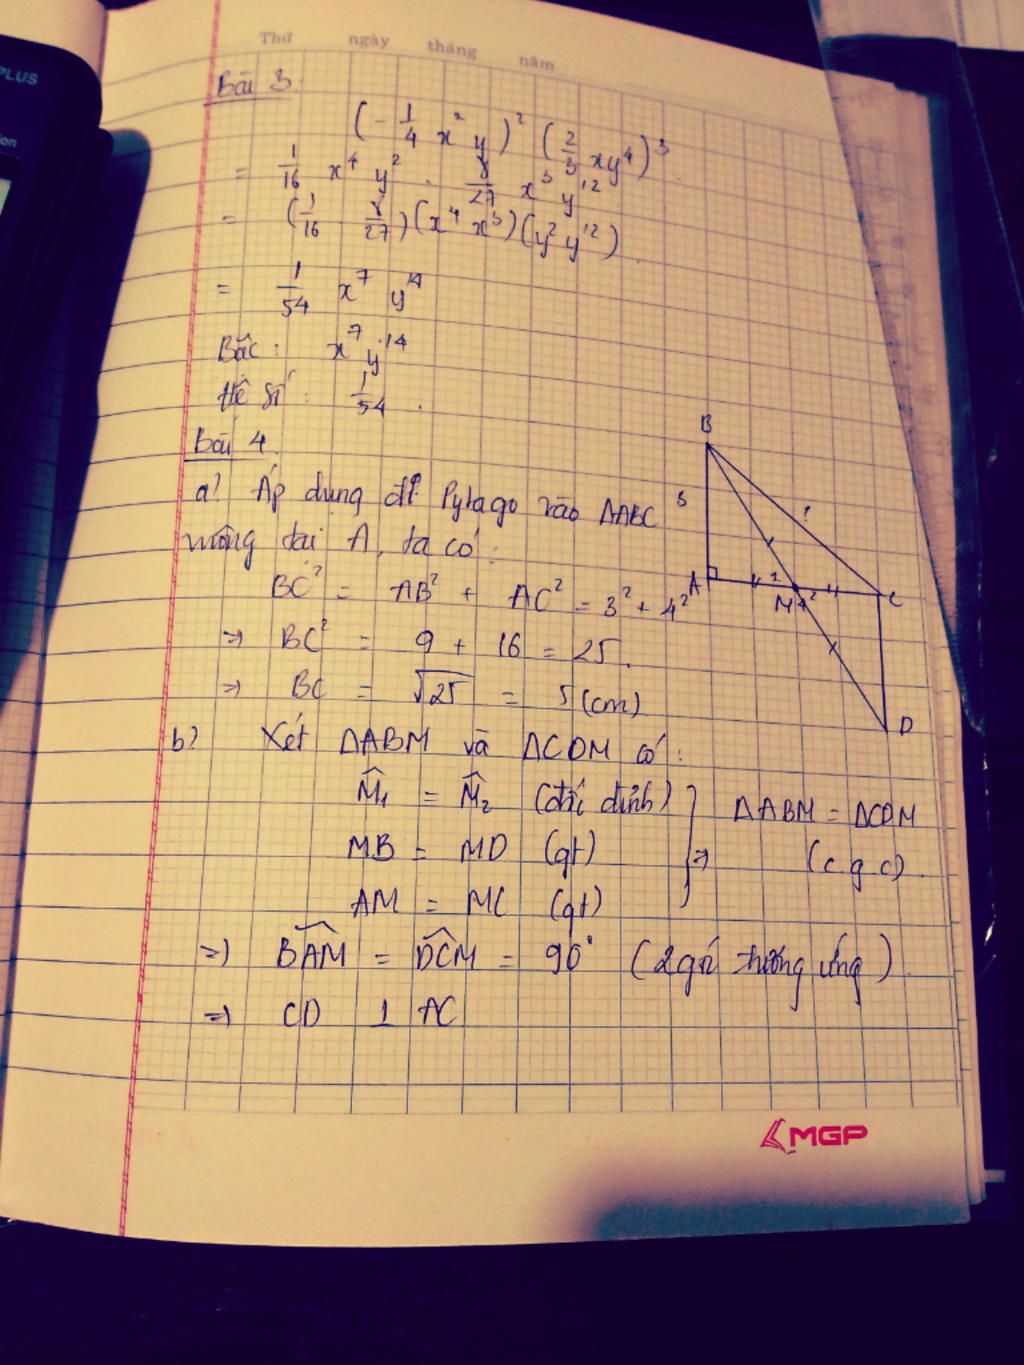 PLUS
Thứ ngày tháng năm
Bài 3
(- 1/4 x² y)² (2/3 xy⁴)³
= 1/16 x⁴ y² . 8/27 x³ y¹²
= (1/16 8/27)(x⁴ x³)(y² y¹²)
= 1/54 x⁷ y¹⁴
Bậc : x⁷ y¹⁴
Hệ số : 1/54 .
Bài 4
a) Áp dụng đl Pytago vào ΔABC
vuông tại A, ta có :
BC² = AB² + AC² = 3² + 4²
=> BC² = 9 + 16 = 25.
=> BC = √25 = 5 (cm)
B
3
A 1 M 2 C
D
b) Xét ΔABM và ΔCDM có :
M̂₁ = M̂₂ (đối đỉnh)
MB = MD (gt)
AM = MC (gt)
} => ΔABM = ΔCDM
(c.g.c)
=> BAM̂ = DCM̂ = 90° (2 góc tương ứng)
=> CD ⊥ AC
MGP